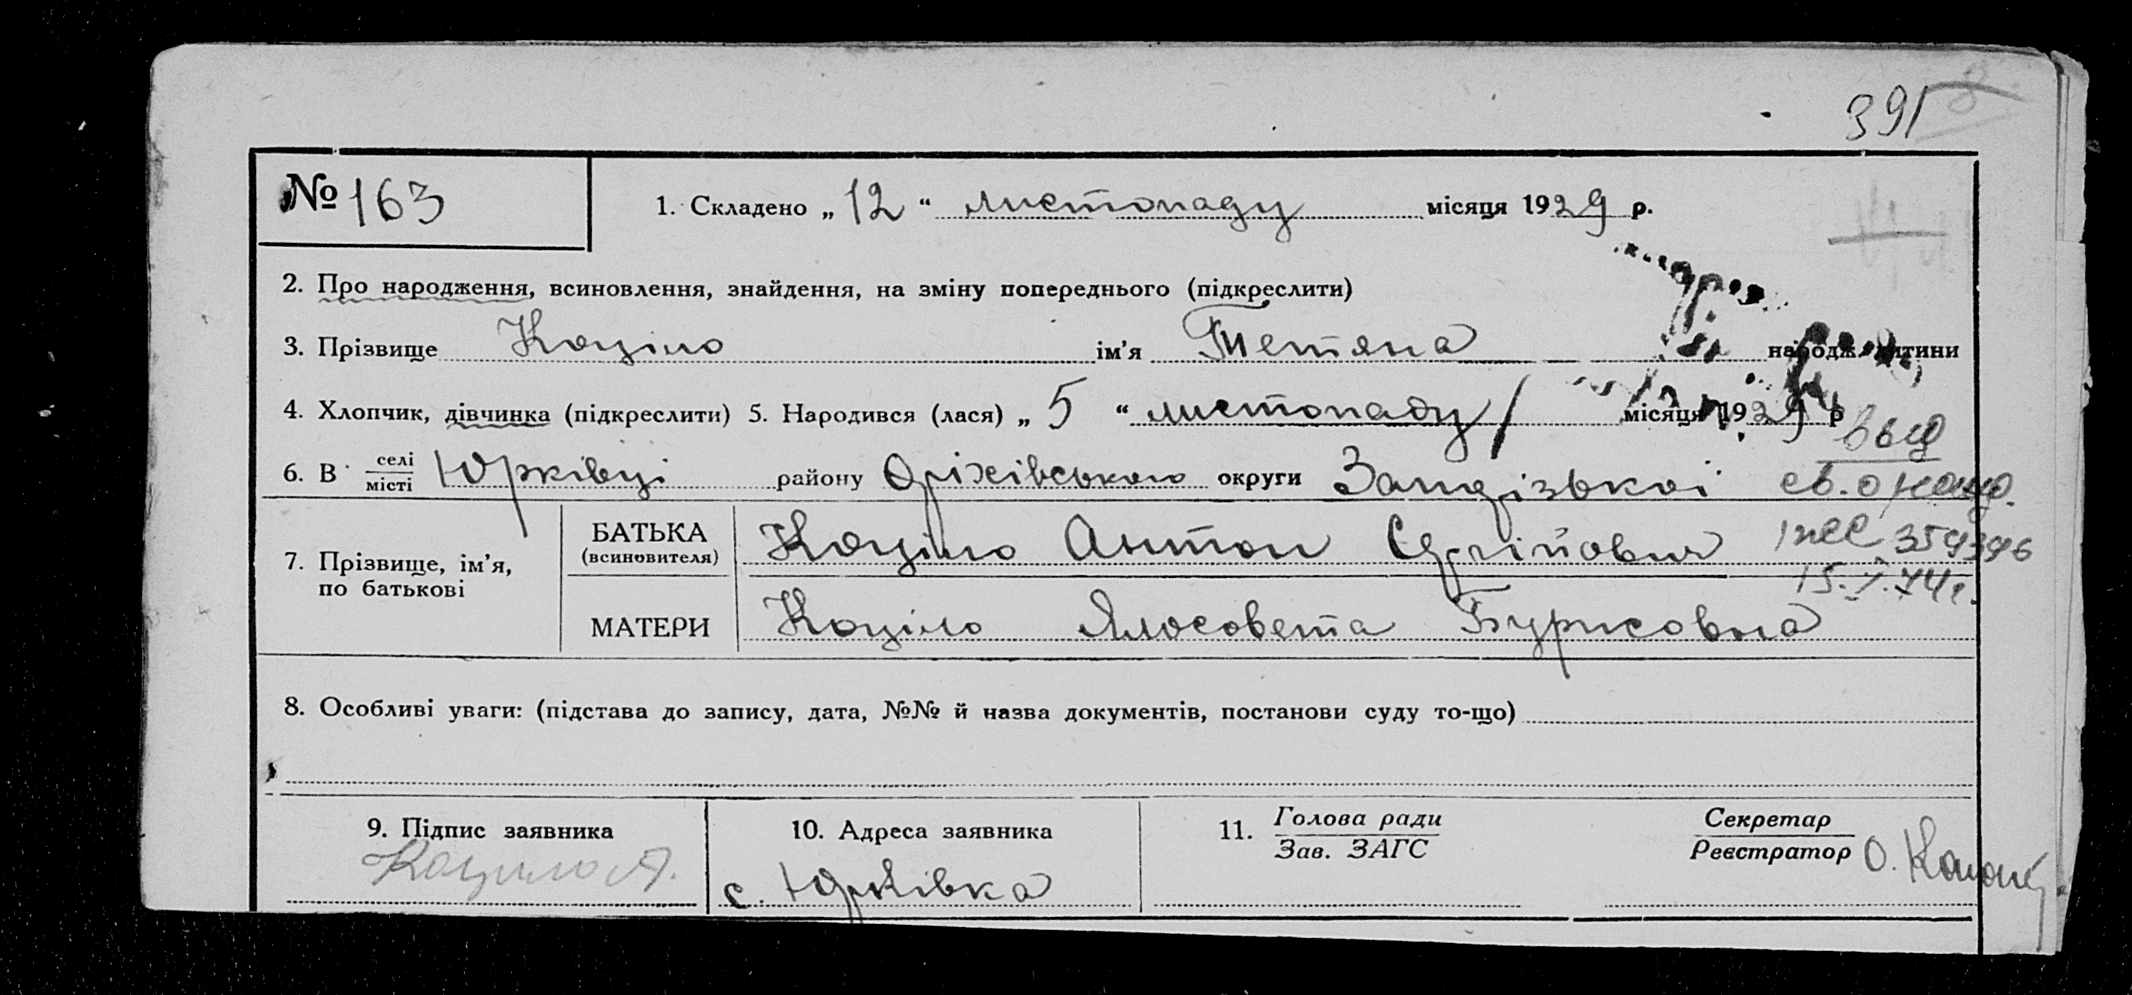 391
№ 163 1. Складено „ 12 “ листопаду місяця 1929 р.
2. Про народження, всиновлення, знайдення, на зміну попереднього (підкреслити)
3. Прізвище Коціло ім’я Тетяна народж. дитини
4. Хлопчик, дівчинка (підкреслити) 5. Народився (лася) „ 5 “ листопаду місяця 1929 р
6. В селі місті Юрківці району Оріхівського округи Запорізької
Выд
св. о рожд.
359396
15. 74г.
7. Прізвище, ім’я, по батькові
БАТЬКА (всиновителя) Коціло Антон
МАТЕРИ Коціло Ялосовета Бурисовна
8. Особливі уваги: (підстава до запису, дата, №№ й назва документів, постанови суду то-що)
9. Підпис заявника
Коцило А.
10. Адреса заявника
с. Юрківка
11. Голова ради
Зав. ЗАГС
Секретар
Реєстратор О.